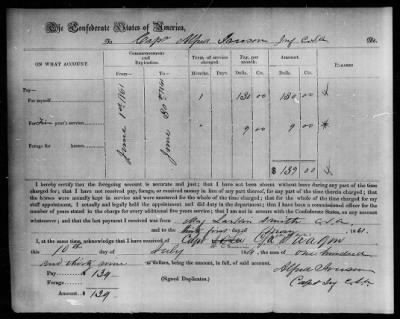 The Confederate States of America,
To Capt Alfred Iverson Inf C.S.A Dr.
ON WHAT ACCOUNT.
COMMENCEMENT
and
EXPIRATION.
TERM OF SERVICE
CHARGED.
PAY PER
MONTH.
AMOUNT.
REMARKS
From— To— Months. Days. Dols. Cts. Dols. Cts.
Pay—
For myself 1 130 00 130 00
For five years' service: " 9 00 9 00
Forage for horses.
June 1st 1861
June 30th 1861
$ 139 00
I hereby certify that the foregoing account is accurate and just; that I have not been absent without leave during any part of the time
charged for; that I have not received pay, forage, or received money in lieu of any part thereof, for any part of the time therein charged; that
the horses were actually kept in service and were mustered for the whole of the time charged; that for the whole of the time charged for my
staff appointment, I actually and legally held the appointment and did duty in the department; that I have been a commissioned officer for the
number of years stated in the charge for every additional five years service; that I am not in arrears with the Confederate States, on any account
whatsoever; and that the last payment I received was from Maj Larkin Smith C.S.A
and to the thirty first day of May 1861.
I, at the same time, acknowledge that I have received of Capt
this 10th day of July 1861 the sum of one hundred
and thirty nine dollars, being the amount, in full, of said account.
Pay $ 139
Forage
Amount $ 139
(Signed Duplicates.)
Alfred Iverson
Capt Inf C.S.A